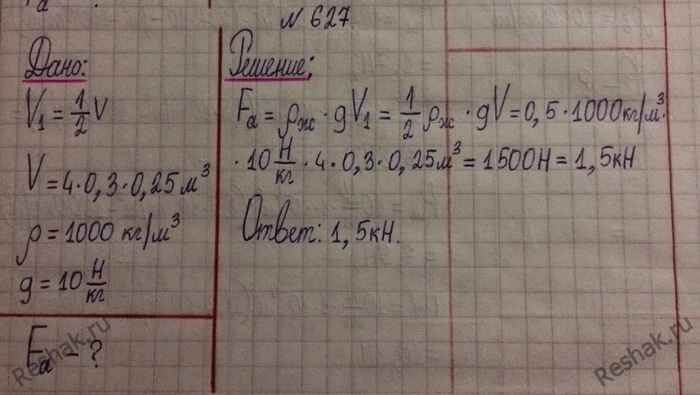 № 627.
Дано:
V₁ = 1/2 V
V = 4·0,3·0,25 м³
ρ = 1000 кг/м³
g = 10 Н/кг
Fa - ?
Решение:
Fa = ρж · gV₁ = 1/2 ρж · gV = 0,5 · 1000 кг/м³ ·
· 10 Н/кг · 4 · 0,3 · 0,25 м³ = 1500 Н = 1,5 кН
Ответ: 1,5 кН.
Reshak.ru
Reshak.ru